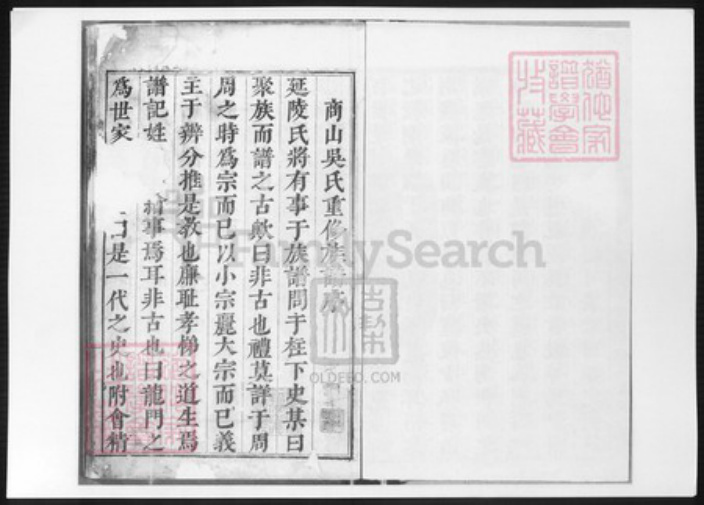 商山吳氏重修族譜序
延陵氏將有事于族譜問于柱下史某曰
聚族而譜之古歟曰非古也禮莫詳于周
周之時爲宗而已以小宗麗大宗而已義
主于辨分推是教也廉耻孝悌之道生焉
譜記姓 事爲耳非古也曰龍門之
爲世家 是一代之史也附會精
FamilySearch
OLDEEO.COM
譜學會
收藏